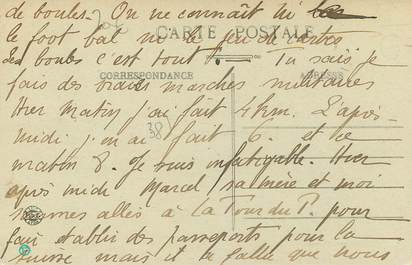 de boules. On ne connaît ni
le foot bal ni le jeu de cartes
CARTE POSTALE
des boules c'est tout! Tu sais je
CORRESPONDANCE
ADRESSE
fais des vraies marches militaires
Hier matin j'ai fait 4 km. L'après-
midi j'en ai fait 6. et ce
38
matin 8. Je suis infatigable. Hier
après midi Marcel, sa mère et moi
sommes allés à La Tour du P. pour
faire établir des passeports pour la
Suisse mais il a fallu que nous